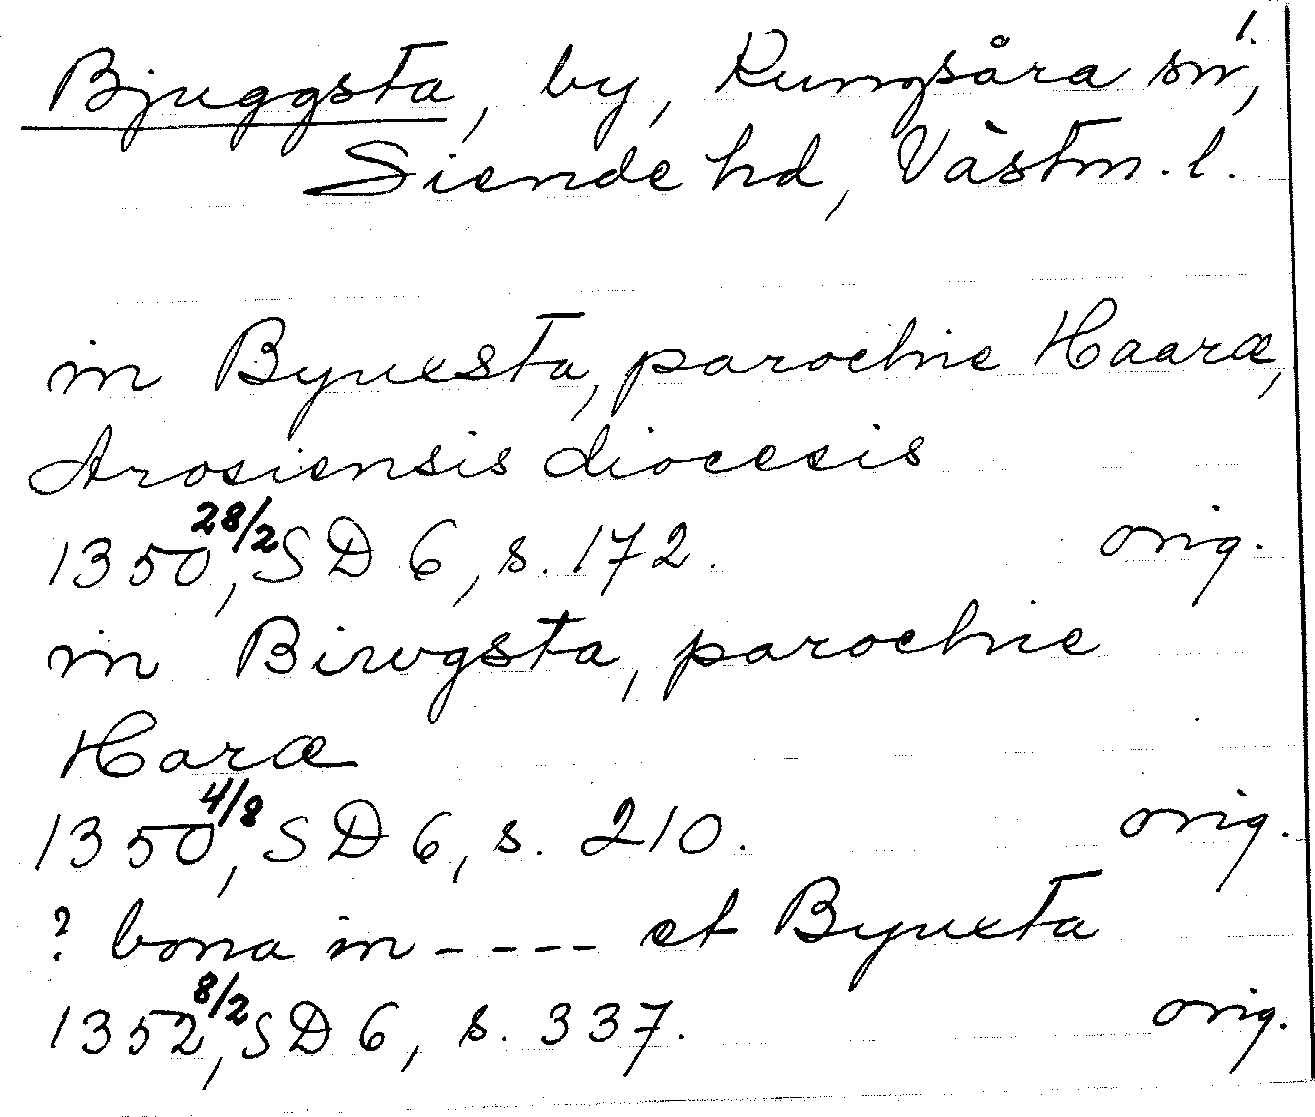 1.
Bjuggsta, by, Kungsåra sn,
Siende hd, Västm. l.
in Byuxsta, parochie Haaræ,
Arosiensis diocesis
1350 28/2, SD 6, s. 172. orig.
in Biwgsta, parochie
Haræ
1350 4/8, SD 6, s. 210. orig.
? bona in - - - - et Byuxta
1352 8/2, SD 6, s. 337. orig.